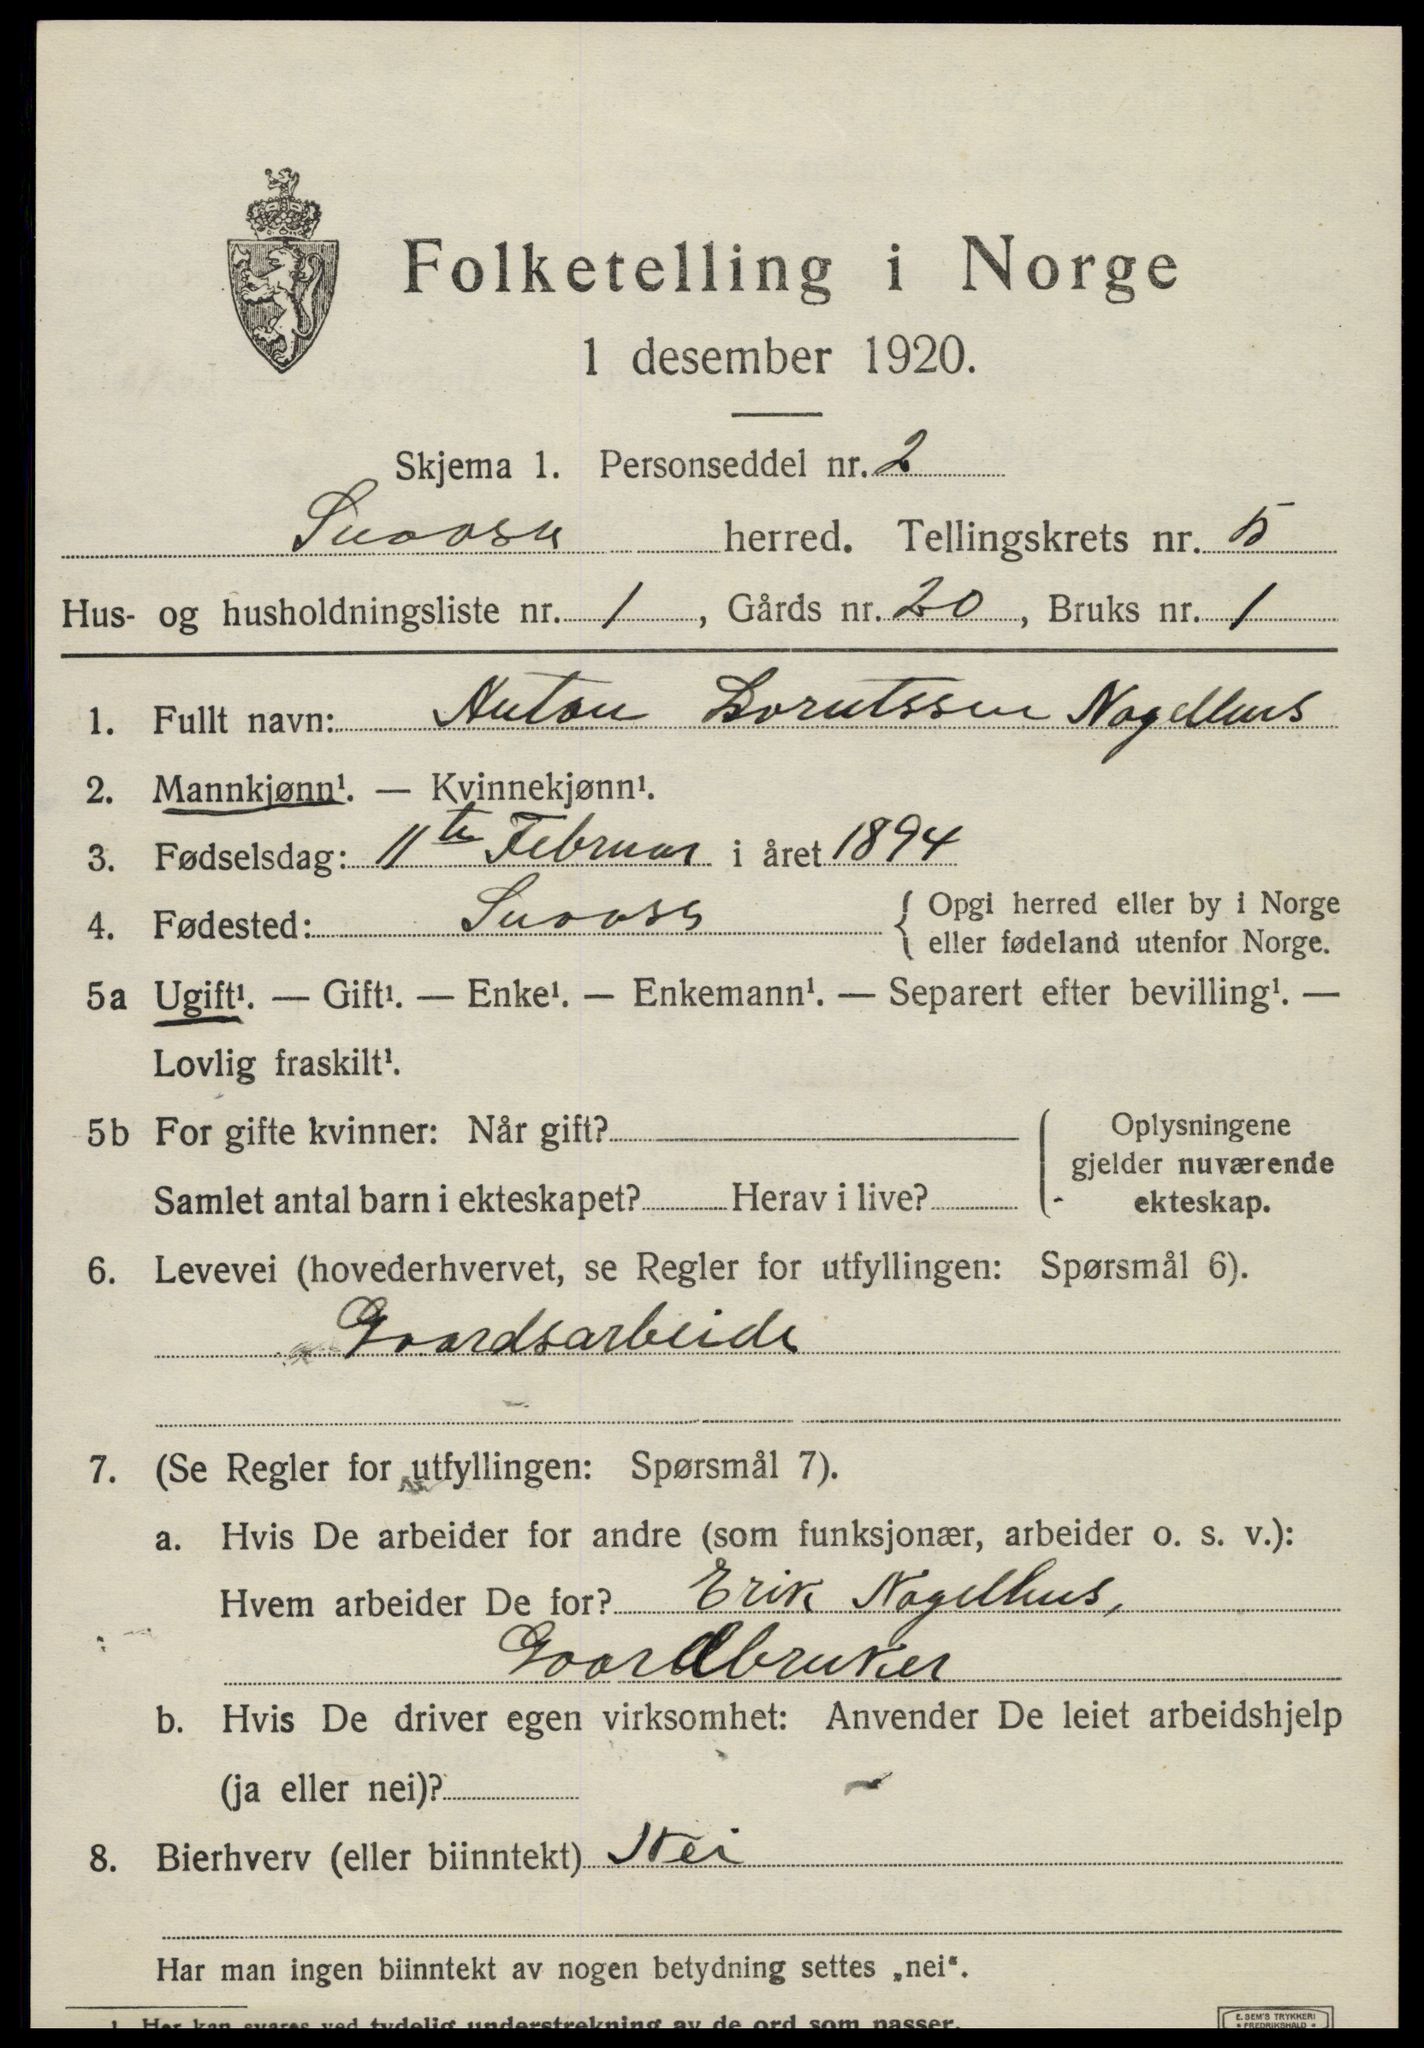 Folketelling i Norge
1 desember 1920.
Skjema 1. Personseddel nr. 2
Snaasa herred. Tellingskrets nr. 5
Hus- og husholdningsliste nr. 1, Gårds nr. 20, Bruks nr. 1
1. Fullt navn: Anton Borutssen Nagelhus
2. Mannkjønn¹. — Kvinnekjønn¹.
3. Fødselsdag: 11te Februar i året 1894
4. Fødested: Snaasa { Opgi herred eller by i Norge
eller fødeland utenfor Norge.
5a Ugift¹. — Gift¹. — Enke¹. — Enkemann¹. — Separert efter bevilling¹. —
Lovlig fraskilt¹.
5b For gifte kvinner: Når gift? ( Oplysningene
gjelder nuværende
Samlet antal barn i ekteskapet? Herav i live? ekteskap.
6. Levevei (hovederhvervet, se Regler for utfyllingen: Spørsmål 6).
Gaardsarbeide
7. (Se Regler for utfyllingen: Spørsmål 7).
a. Hvis De arbeider for andre (som funksjonær, arbeider o. s. v.):
Hvem arbeider De for? Erik Nagelhus,
Gaardbruker
b. Hvis De driver egen virksomhet: Anvender De leiet arbeidshjelp
(ja eller nei)?
8. Bierhverv (eller biinntekt) Nei
Har man ingen biinntekt av nogen betydning settes „nei“.
1 Her kan svares ved tydelig understrekning av de ord som passer.
E. SEM'S TRYKKERI
• FREDRIKSHALD •